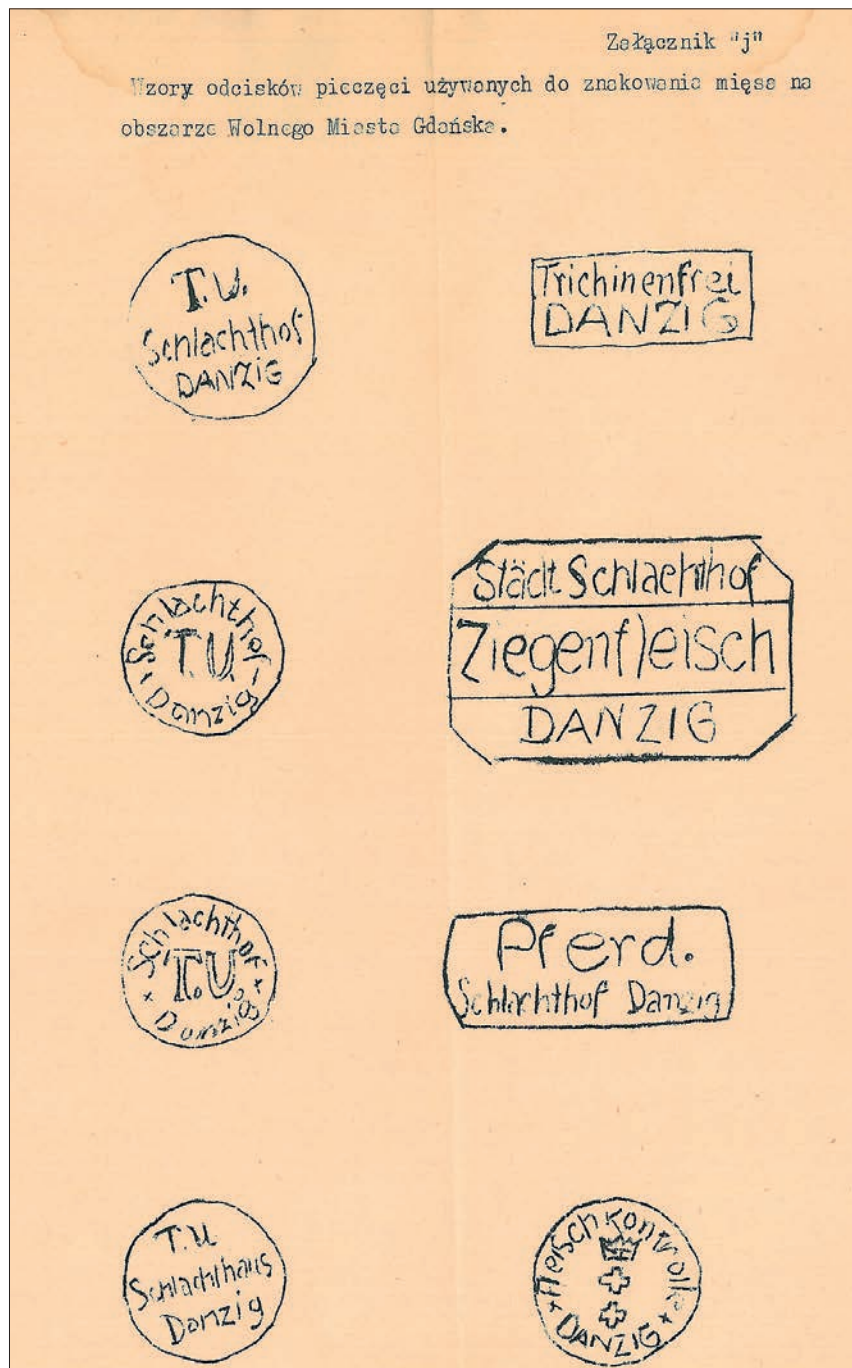 Załącznik "j"
Wzory odcisków pieczęci używanych do znakowania mięsa na
obszarze Wolnego Miasta Gdańska.
T.U.
Schlachthof
DANZIG
Trichinenfrei
DANZIG
Schlachthof
T.U.
Danzig
Städt Schlachthof
Ziegenfleisch
DANZIG
Schlachthof
T.U.
Danzig
Pferd.
Schlachthof Danzig
T.U
Schlachthaus
Danzig
Fleischkontrolle
DANZIG